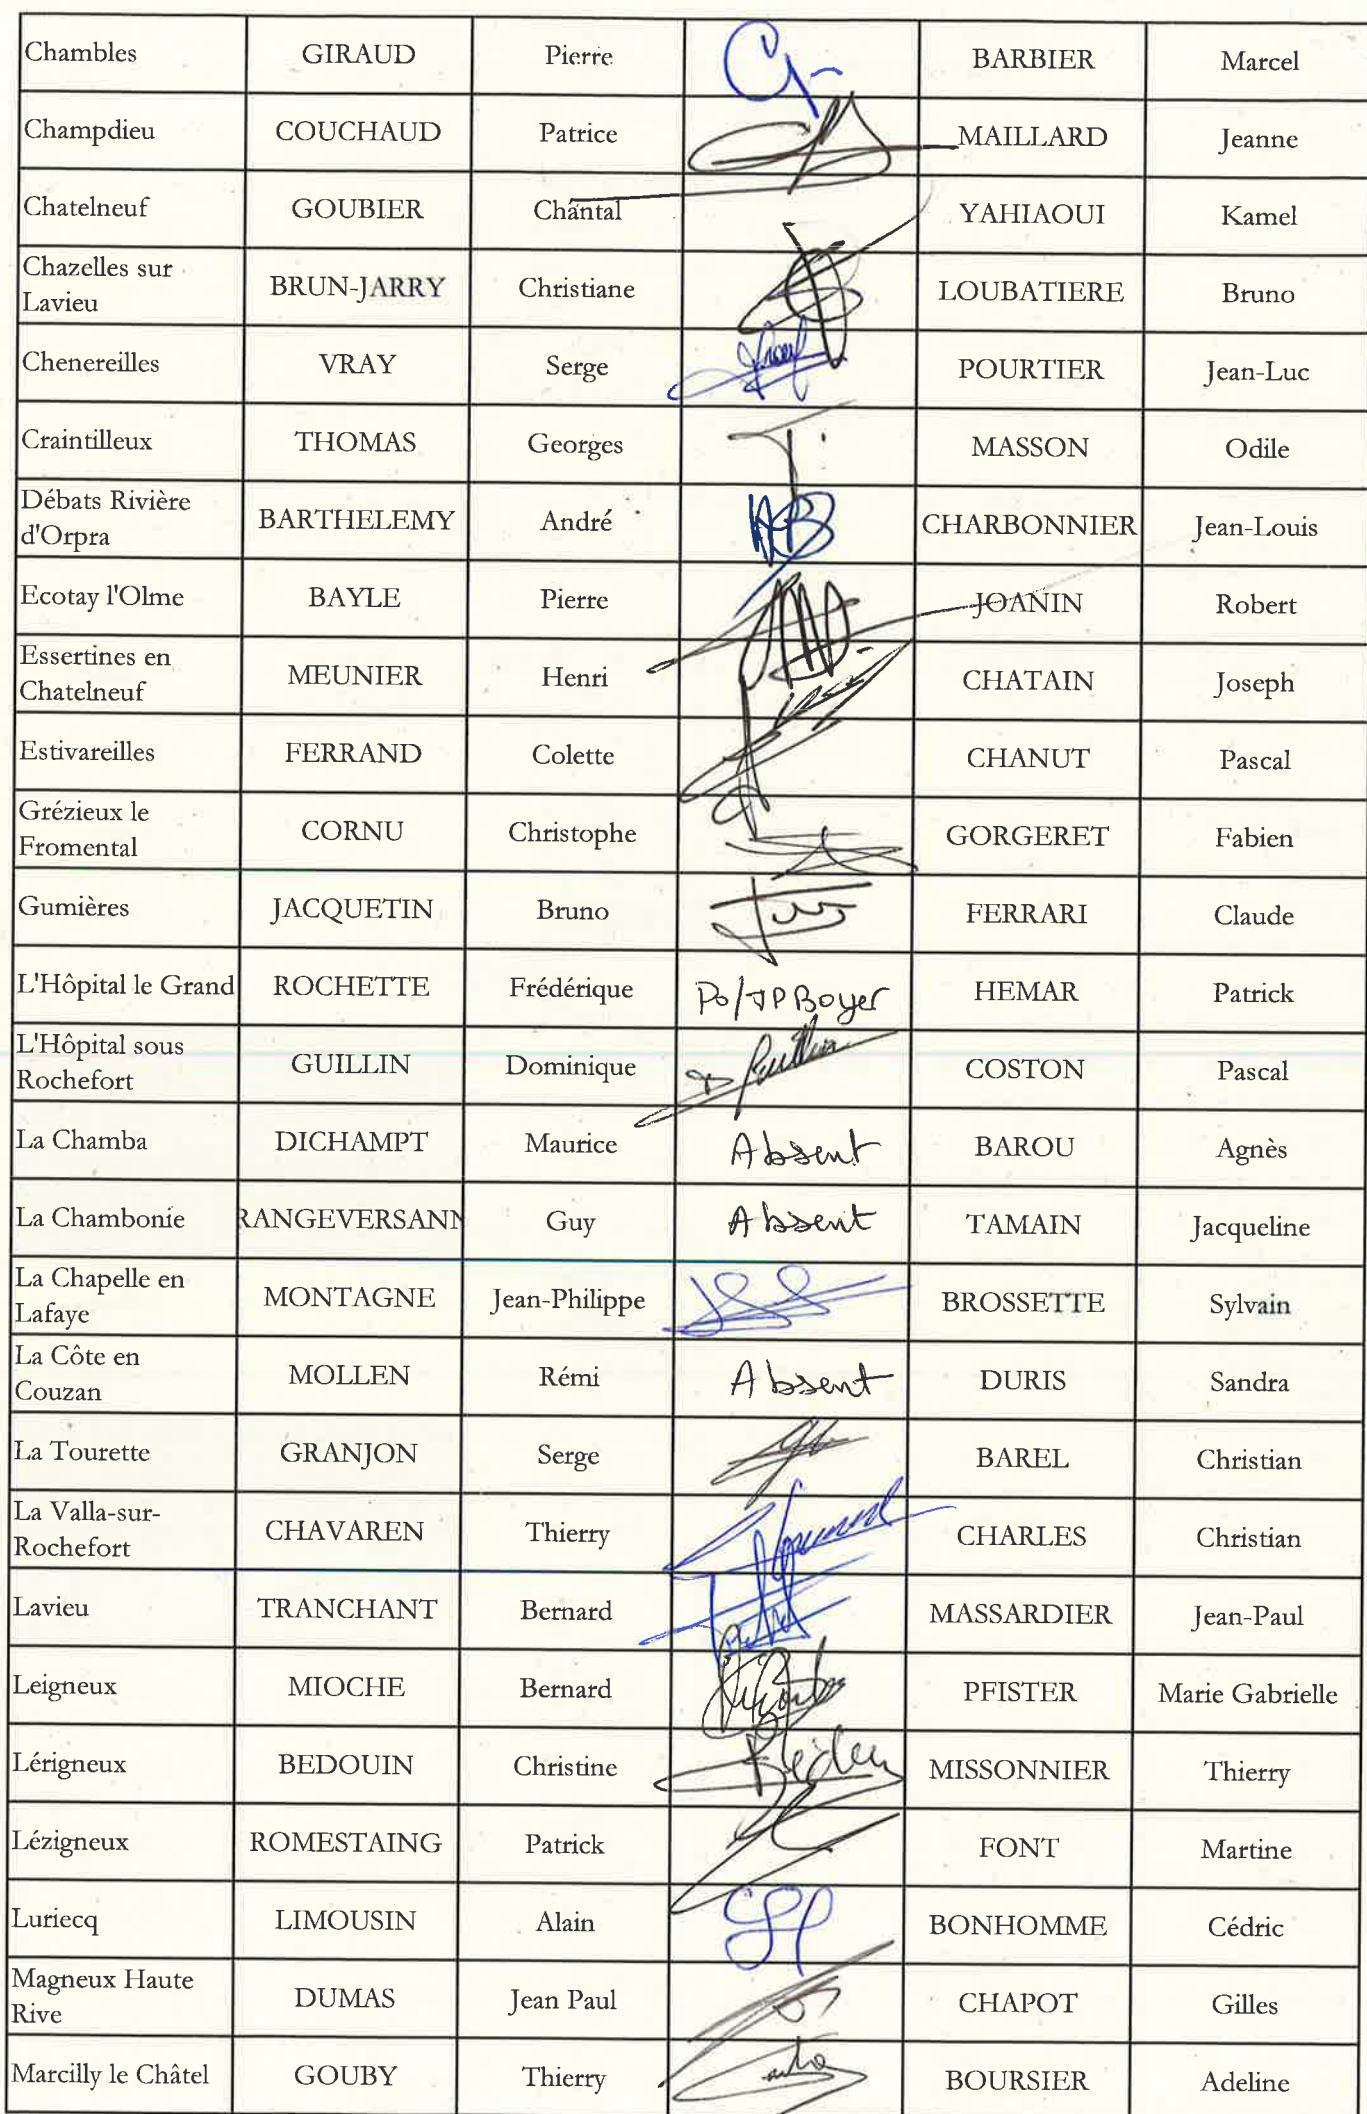 Chambles GIRAUD Pierre BARBIER Marcel
Champdieu COUCHAUD Patrice MAILLARD Jeanne
Chatelneuf GOUBIER Chantal YAHIAOUI Kamel
Chazelles sur
Lavieu BRUN-JARRY Christiane LOUBATIERE Bruno
Chenereilles VRAY Serge POURTIER Jean-Luc
Craintilleux THOMAS Georges MASSON Odile
Débats Rivière
d'Orpra BARTHELEMY André CHARBONNIER Jean-Louis
Ecotay l'Olme BAYLE Pierre JOANIN Robert
Essertines en
Chatelneuf MEUNIER Henri CHATAIN Joseph
Estivareilles FERRAND Colette CHANUT Pascal
Grézieux le
Fromental CORNU Christophe GORGERET Fabien
Gumières JACQUETIN Bruno FERRARI Claude
L'Hôpital le Grand ROCHETTE Frédérique Po/JP Boyer HEMAR Patrick
L'Hôpital sous
Rochefort GUILLIN Dominique COSTON Pascal
La Chamba DICHAMPT Maurice Absent BAROU Agnès
La Chambonie RANGEVERSANN Guy Absent TAMAIN Jacqueline
La Chapelle en
Lafaye MONTAGNE Jean-Philippe BROSSETTE Sylvain
La Côte en
Couzan MOLLEN Rémi Absent DURIS Sandra
La Tourette GRANJON Serge BAREL Christian
La Valla-sur-
Rochefort CHAVAREN Thierry CHARLES Christian
Lavieu TRANCHANT Bernard MASSARDIER Jean-Paul
Leigneux MIOCHE Bernard PFISTER Marie Gabrielle
Lérigneux BEDOUIN Christine MISSONNIER Thierry
Lézigneux ROMESTAING Patrick FONT Martine
Luriecq LIMOUSIN Alain BONHOMME Cédric
Magneux Haute
Rive DUMAS Jean Paul CHAPOT Gilles
Marcilly le Châtel GOUBY Thierry BOURSIER Adeline